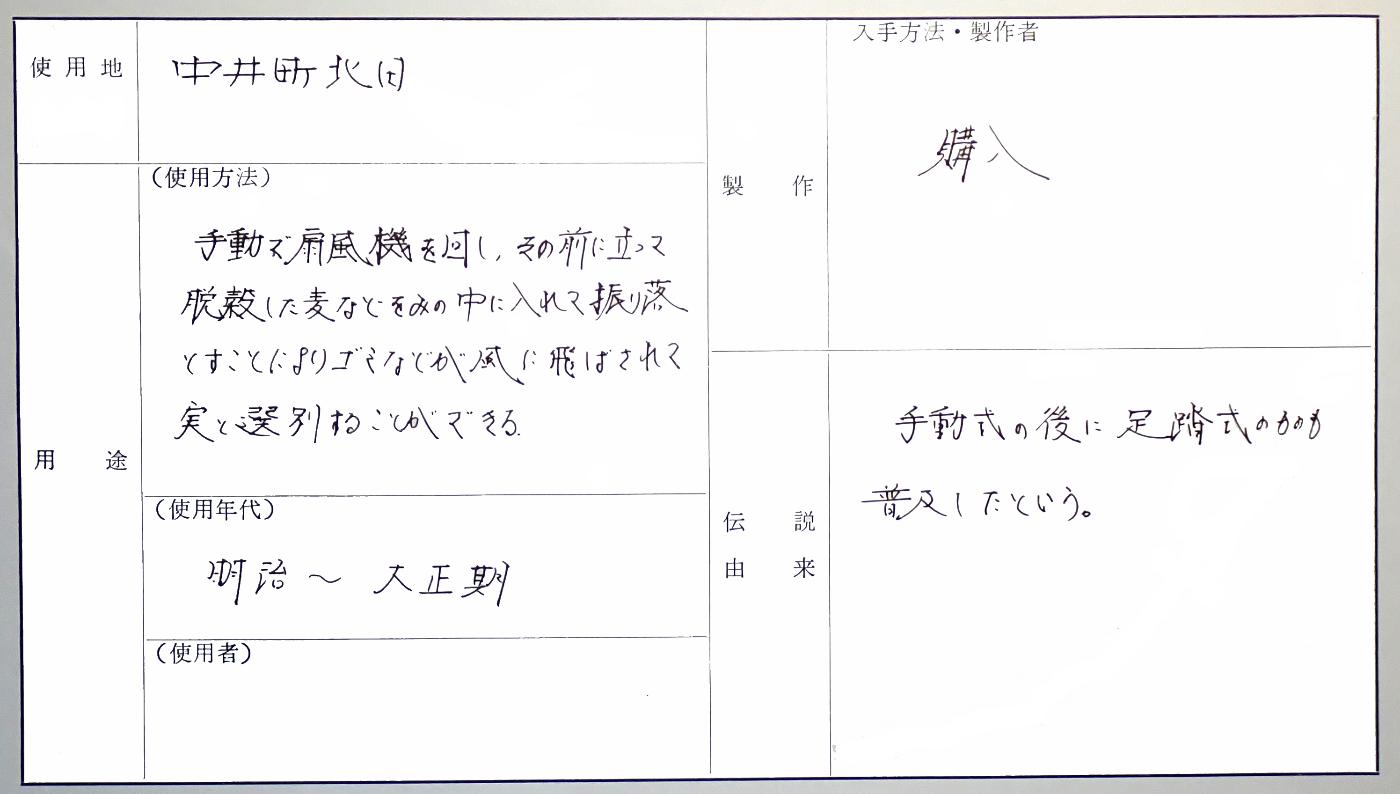 使用地
中井町北田
用途
(使用方法)
手動で扇風機を回し、その前に立って
脱穀した麦などをみの中に入れて振り落
とすことによりゴミなどが風に飛ばされて
実と選別することができる。
(使用年代)
明治～大正期
(使用者)
製作
入手方法・製作者
購入
伝説
由来
手動式の後に足踏式のものも
普及したという。